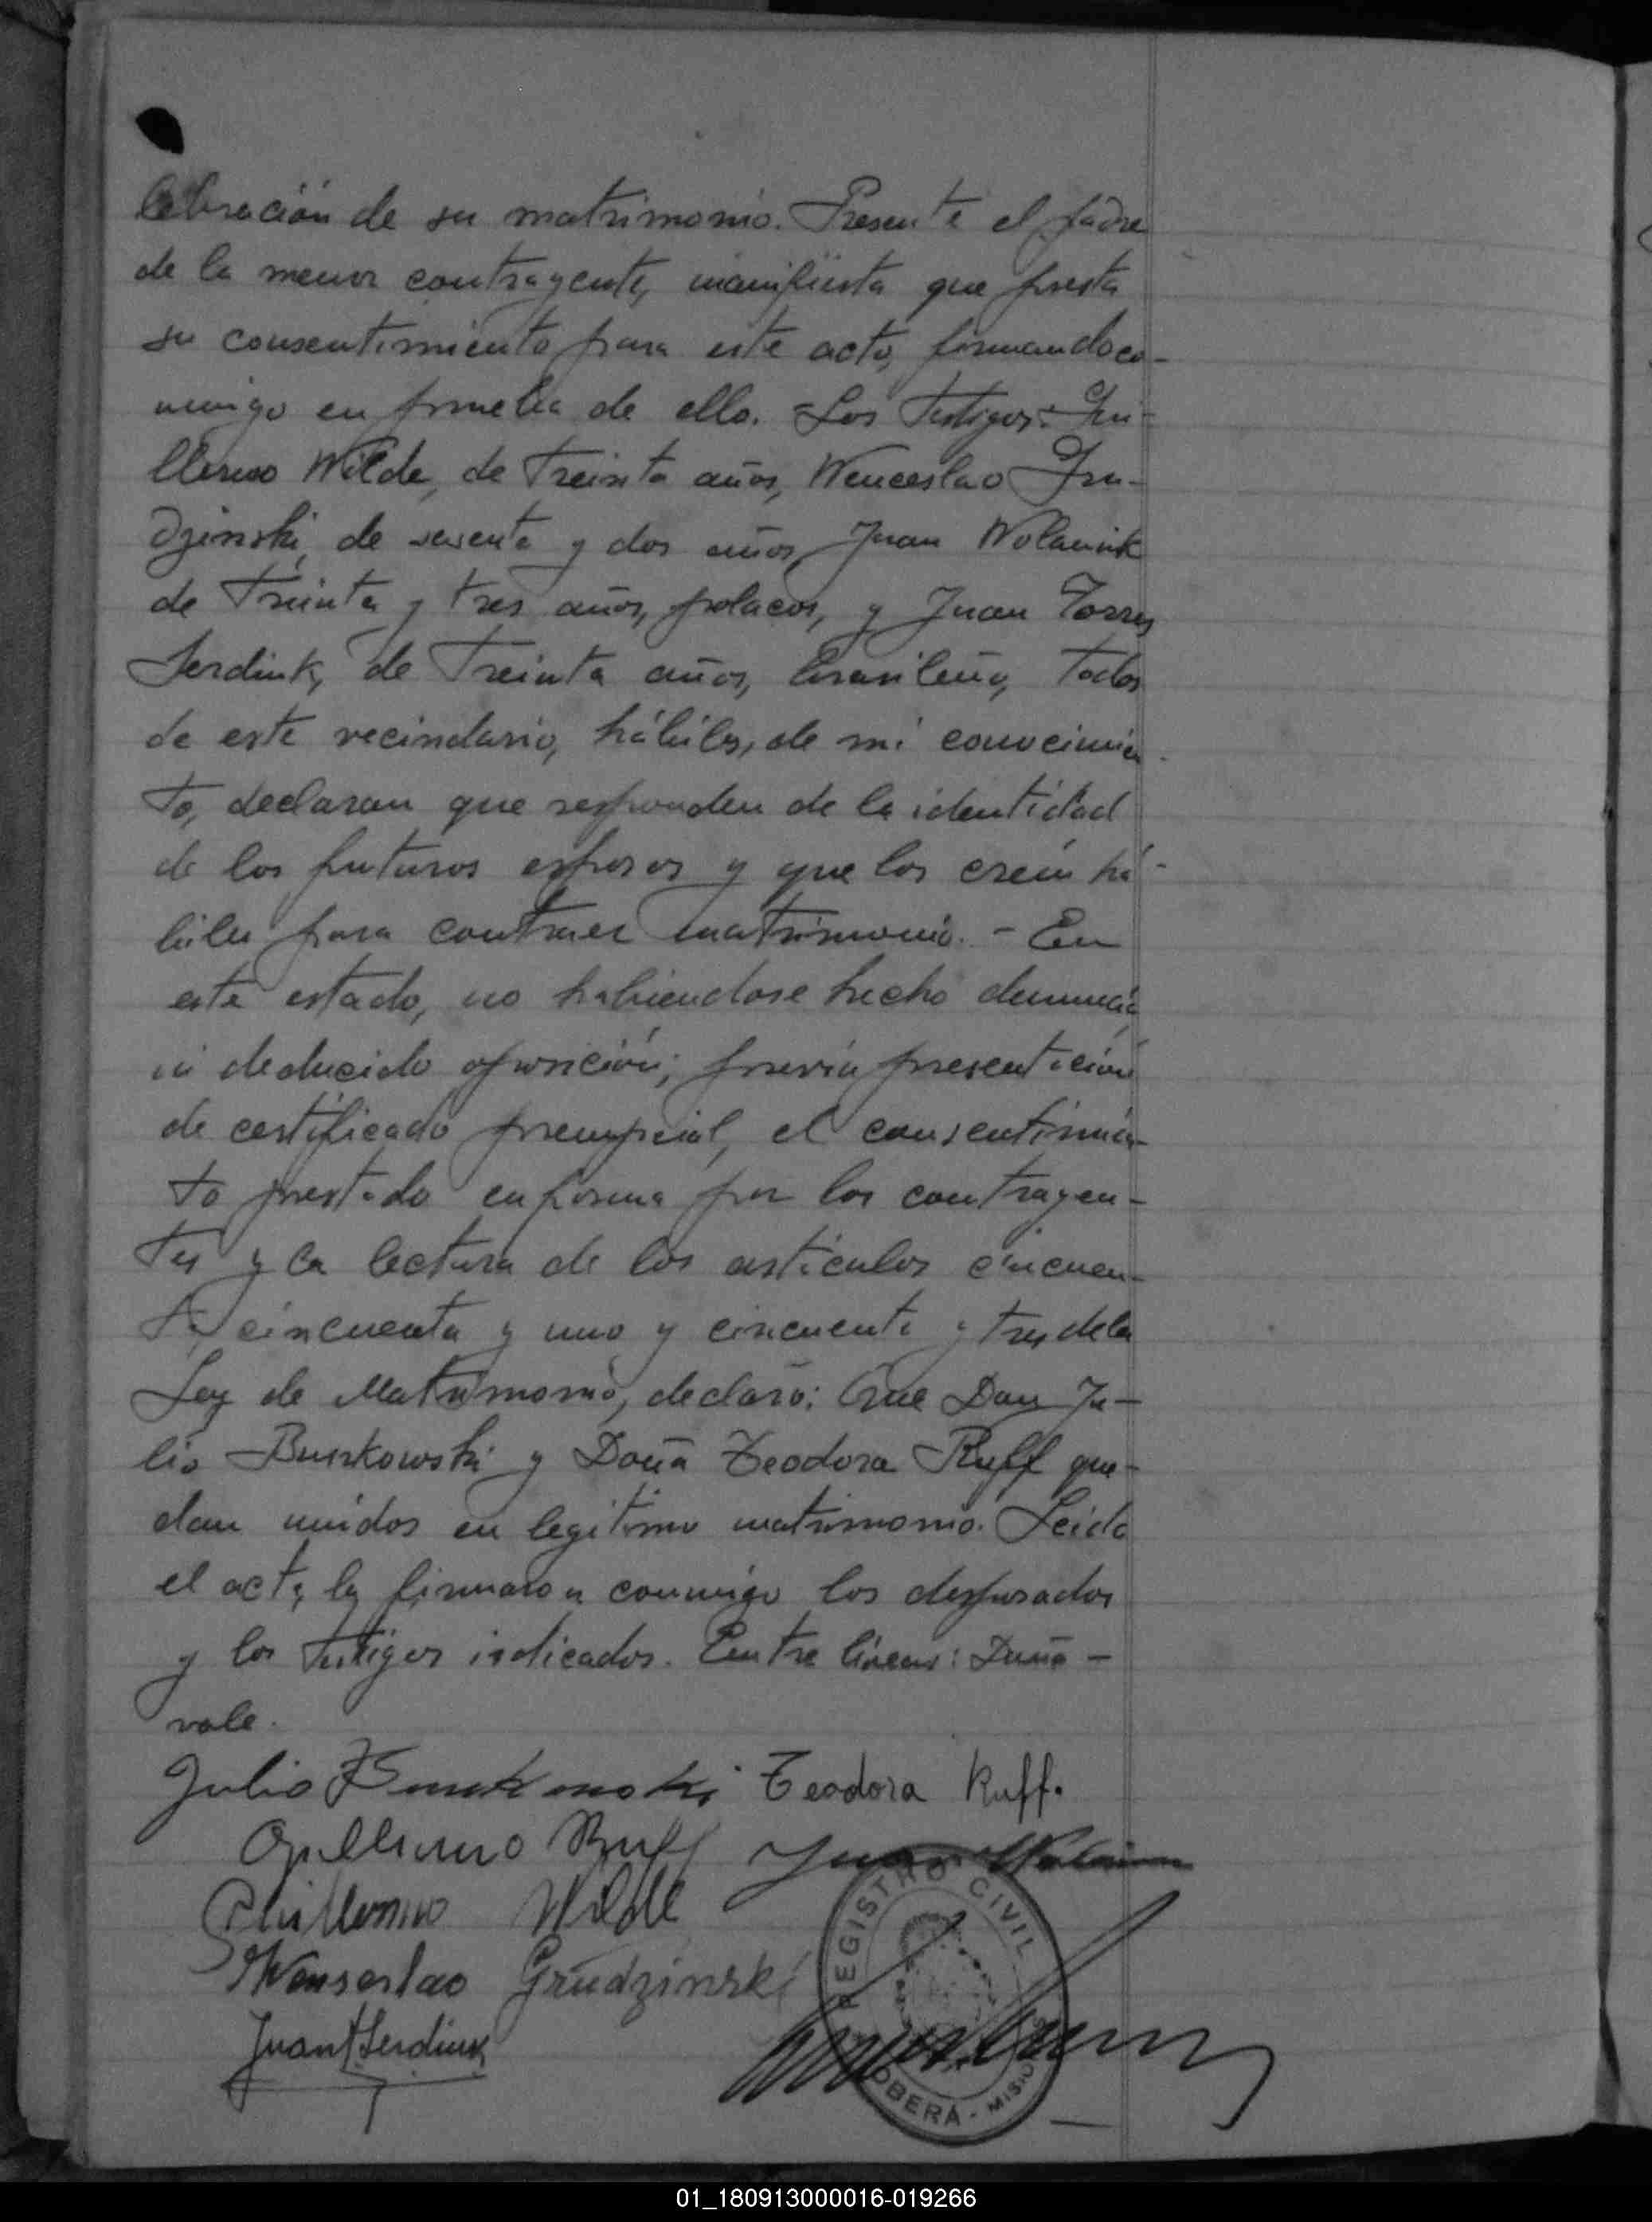 lebración de su matrimonio. Presente el padre
de la menor contrayente, manifiesta que presta
su consentimiento para este acto, firmando co-
nmigo en prueba de ello. = Los testigos: Gui-
llermo Wilde, de treinta años, Wenceslao Gru-
dzinski, de sesenta y dos años, Juan Wolaniuk
de treinta y tres años, polacos, y Juan Torres
Serdiuk, de treinta años, brasileño, todos
de este vecindario, hábiles, de mi conocimien
to, declaran que responden de la identidad
de los futuros esposos y que los creen há-
biles para contraer matrimonio. - En
este estado, no habiendose hecho denuncia
ni deducido oposición; previa presentación
de certificado prenupcial, el consentimien-
to prestado en forma por los contrayen-
tes y la lectura de los artículos cincuen-
ta, cincuenta y uno y cincuenta y tres de la
Ley de Matrimonio, declaro: Que Don Ju-
lio Burkowski y Doña Teodora Ruff que-
dan unidos en legítimo matrimonio. Leida
el acta la firmaron conmigo los desposados
y los testigos indicados. Entre líneas: Doña -
vale.
Julio Teodora Ruff.
Guillermo Ruff Juan
Guillermo Wilde
Wenseslao Grudzinski
Juan T Serdiuk
REGISTRO CIVIL
OBERÁ - MISIO
01_180913000016-019266